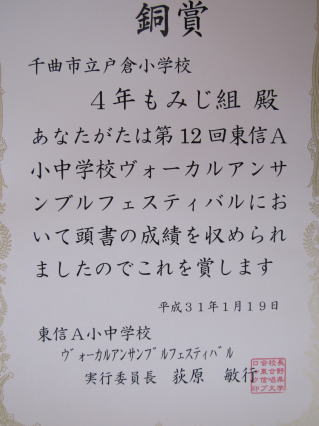 銅賞
千曲市立戸倉小学校
４年もみじ組 殿
あなたがたは第12回東信Ａ
小中学校ヴォーカルアンサ
ンブルフェスティバルにお
いて頭書の成績を収められ
ましたのでこれを賞します
平成３１年１月１９日
東信Ａ小中学校
ｳﾞｫｰｶﾙｱﾝｻﾝﾌﾞﾙﾌｪｽﾃｨﾊﾞﾙ
実行委員長 荻原 敏行